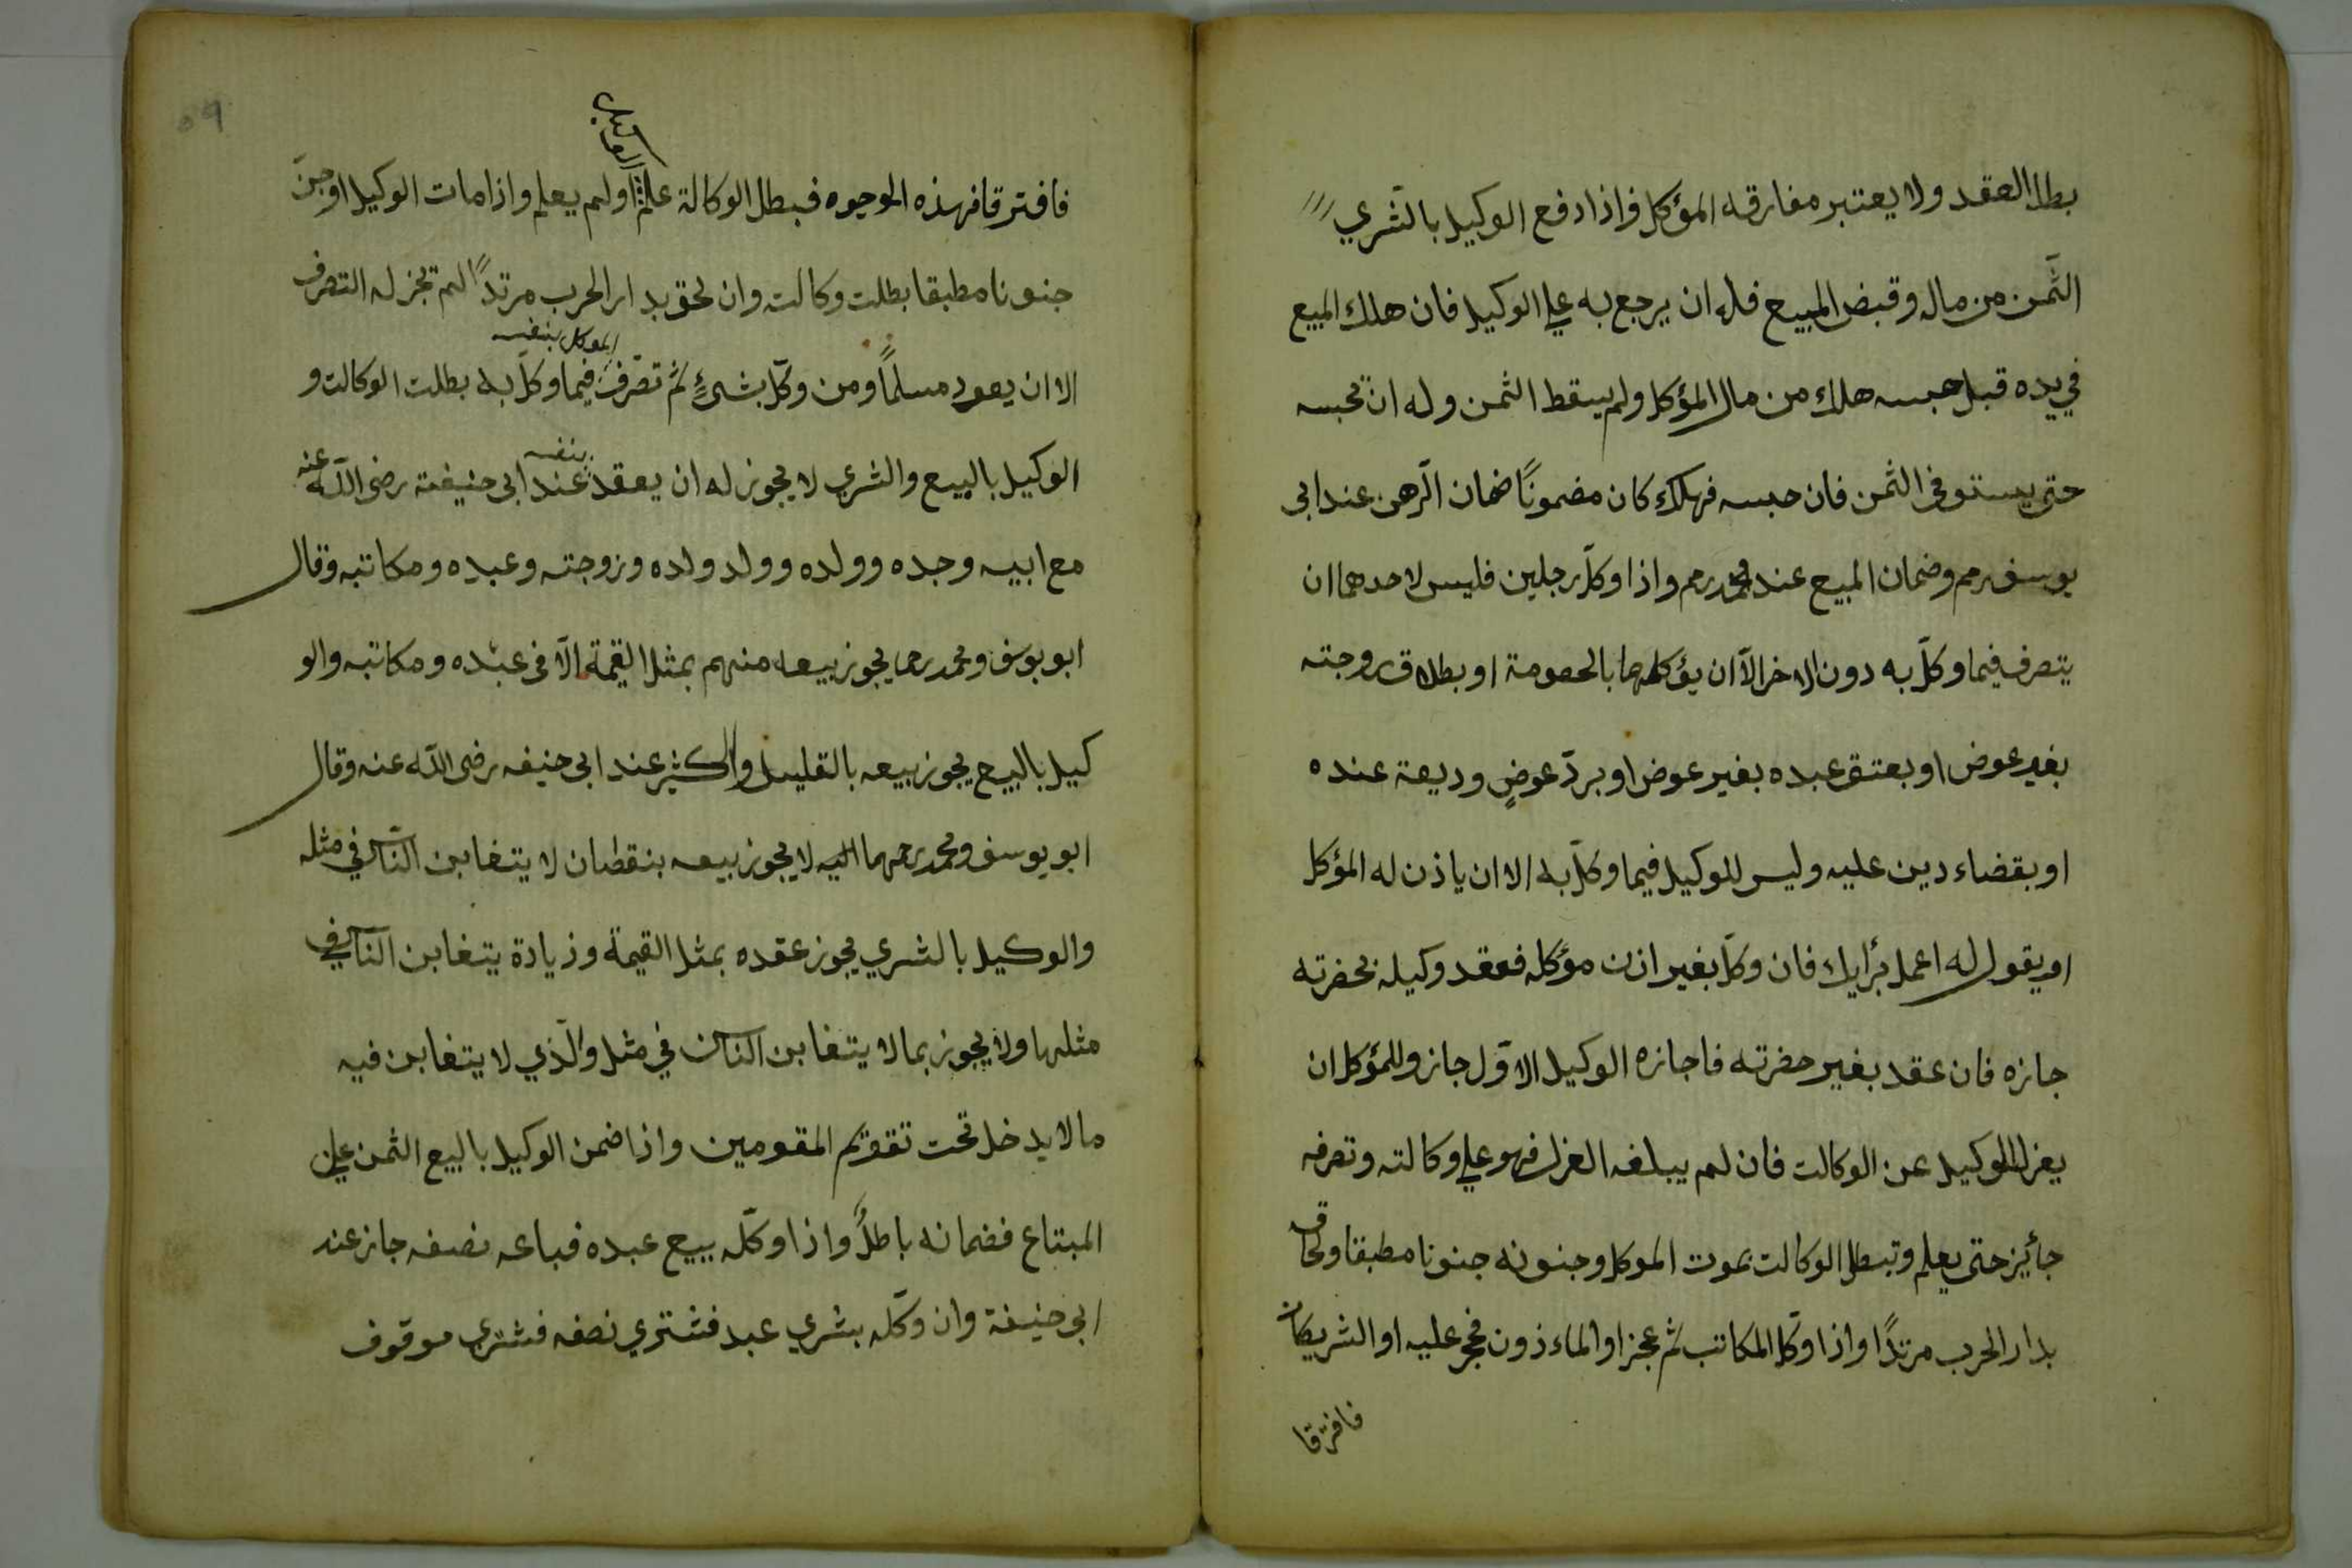 بطل العقد ولا يعتبر مفارقه المؤكل فاذا دفع الوكيل بالشري
الثمن من ماله وقبض المبيع فله ان يرجع به علي الوكيل فان هلك المبيع
في يده قبل حبسه هلك من مال المؤكل ولم يسقط الثمن وله ان يحبسه
حتى يستوفى الثمن فان حبسه فهلك كان مضموناً ضمان الرّهن عند ابى
يوسف رحم وضمان المبيع عند محمد رحم واذا وكلّ رجلين فليس لاحدهما ان
يتصرف فيما وكلّ به دون الاخر الّا ان يؤكلهما بالحصومة او بطلاق زوجته
بغير عوض او بعتق عبده بغير عوض او بردّ عوضٍ وديعة عنده
او بقضاء دين عليه وليس للوكيل فيما وكلّ به الا ان ياذن له المؤكل
او يقول له اعمل برأيك فان وكلّ بغير اذن مؤكله فعقد وكيله بحضرته
جازه فان عقد بغير حضرته فاجازه الوكيل الاوّل جاز وللمؤكل ان
يعزل الوكيل عن الوكالت فان لم يبلغه العزل فهو علي وكالته وتصرفه
جائيز حتى يعلم وتبطل الوكالت بموت الموكل وجنونه جنونا مطبقا ولحاق
بدار الحرب مرتدًا واذا وكل المكاتب ثم عجز او الماءذون فحجر عليه او الشريكان
فافترقا
٥٩
فافترقا فهذه الوجوه فبطل الوكالة علم الوكيل او لم يعلم واذا مات الوكيل او جنّ
جنونا مطبقا بطلت وكالت وان لحق بدار الحرب مرتدًا لم تجز له التصرف
الا ان يعود مسلماً ومن وكلّ بشيءٍ ثم تصرّف الموكل بنفسه فيما وكلّ به بطلت الوكالت و
الوكيل بالبيع والشري لا يجوز له ان يعقد بنفسه عند ابى حنيفة رضى اللّه عنه
مع ابيه وجده وولده وولد ولده وزوجته وعبده ومكاتبه وقال
ابو يوسف ومحمد رحما يجوز بيعه منهم بمثل القيمة الّا فى عبده ومكاتبه والو
كيل بالبيع يجوز بيعه بالقليل والكثير عند ابى حنيفه رضى اللّه عنه وقال
ابو يوسف ومحمد رحمهما اللّه لا يجوز بيعه بنقطان لا يتغابن النّاس في مثله
والوكيل بالشري يجوز عقده بمثل القيمة وزيادة يتغابن النّاس في
مثلها ولا يجوز بما لا يتغابن النّاس في مثل والّذي لا يتغابن فيه
ما لا يدخل تحت تقوّيم المقومين واذا ضمن الوكيل بالبيع الثمن علي
المبتاع فضمانه باطلٌ واذا وكّله ببيع عبده فباعه نصفه جاز عند
ابى حنيفة وان وكّله بشري عبد فشتري نصفه فشتري موقوف